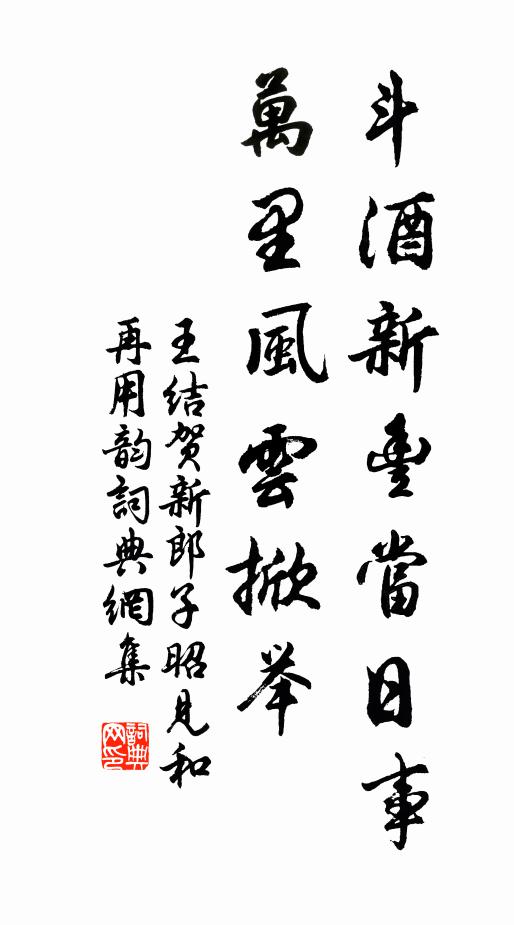 斗酒新豐當日事
萬里風雲掀举
王结贺新郎子昭見和
再用韵詞典網集
詞典网印